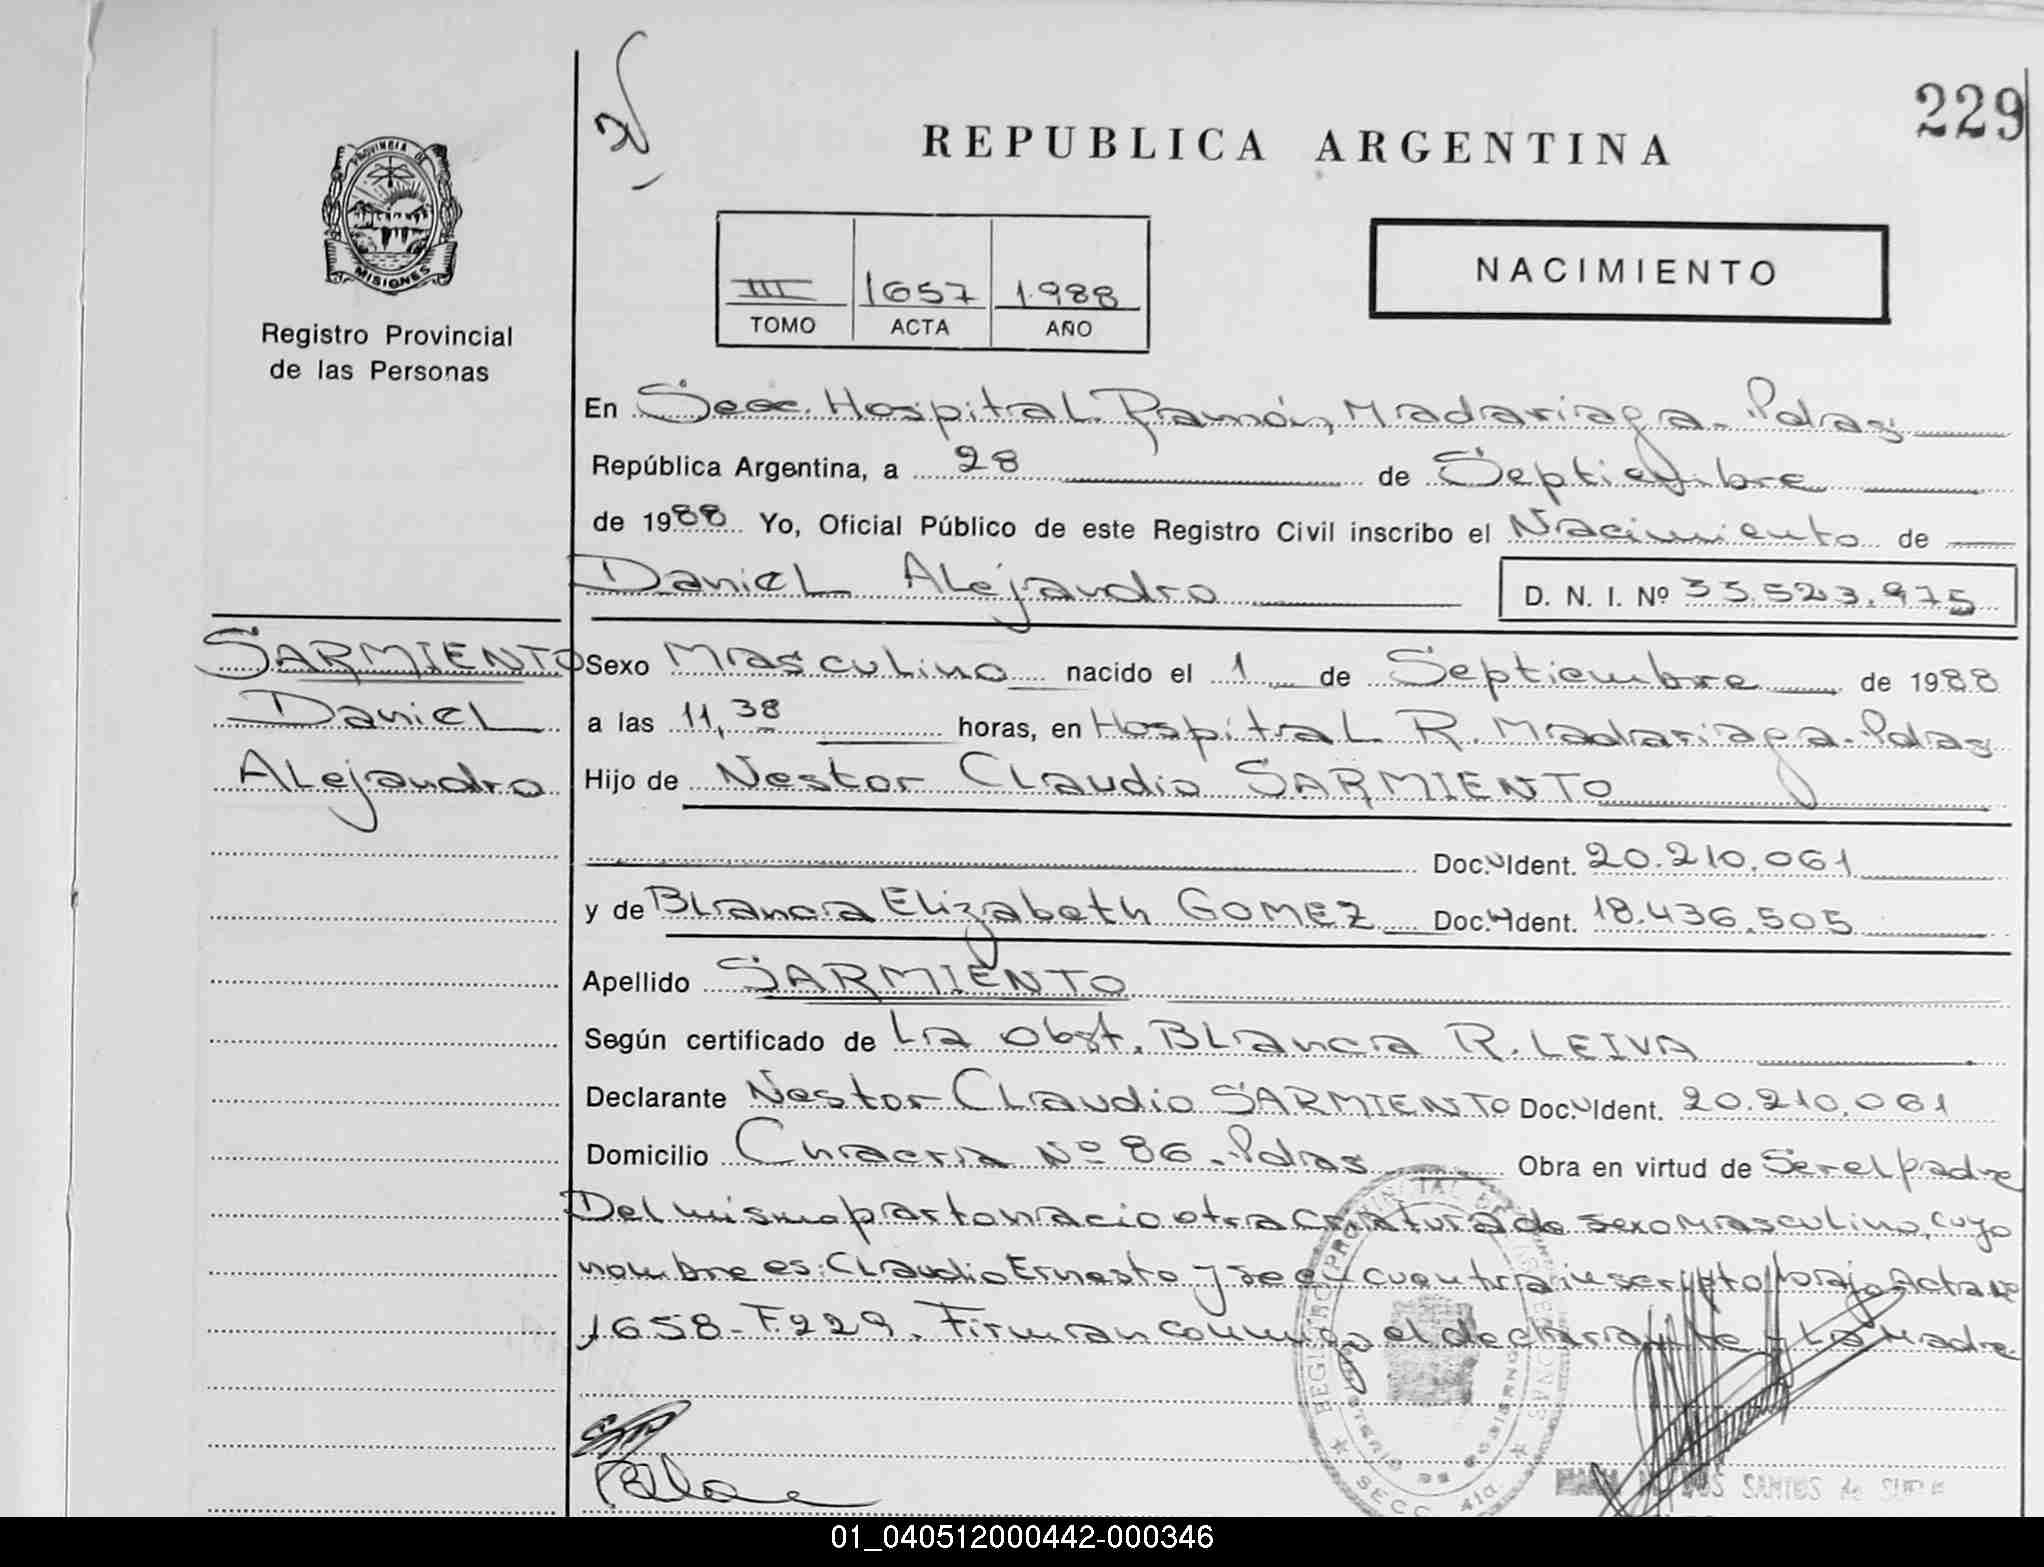 229
REPUBLICA ARGENTINA
PROVINCIA DE
MISIONES
Registro Provincial
de las Personas
NACIMIENTO
III 1657 1.988
TOMO ACTA AÑO
En Secc. Hospital Ramón, Madariaga. Pdas
República Argentina, a 28 de Septiembre
de 1988 Yo, Oficial Público de este Registro Civil inscribo el Nacimiento de
Daniel Alejandro D. N. I. Nº 33.523.975
SARMIENTO
Daniel
Alejandro
Sexo Masculino nacido el 1 de Septiembre de 1988
a las 11,38 horas, en Hospital R. Madariaga. Pdas
Hijo de Nestor Claudio SARMIENTO
Doc. Ident. 20.210.061
y de Blanca Elizabeth GOMEZ Doc. Ident. 18.436.505
Apellido SARMIENTO
Según certificado de La Obst. Blanca R. LEIVA
Declarante Nestor Claudio SARMIENTO Doc. Ident. 20.210.061
Domicilio Chacra Nº 86. Pdas Obra en virtud de Ser el padre
Del mismo parto nacio otra criatura de sexo masculino, cuyo
nombre es: Claudio Ernesto y se encuentra inscripto bajo Acta Nº
1658-F.229. Firman conmigo el declarante y la Madre
REGISTRO PROVINCIAL
SECC. 4ta.
DOS SANTOS de
01_040512000442-000346